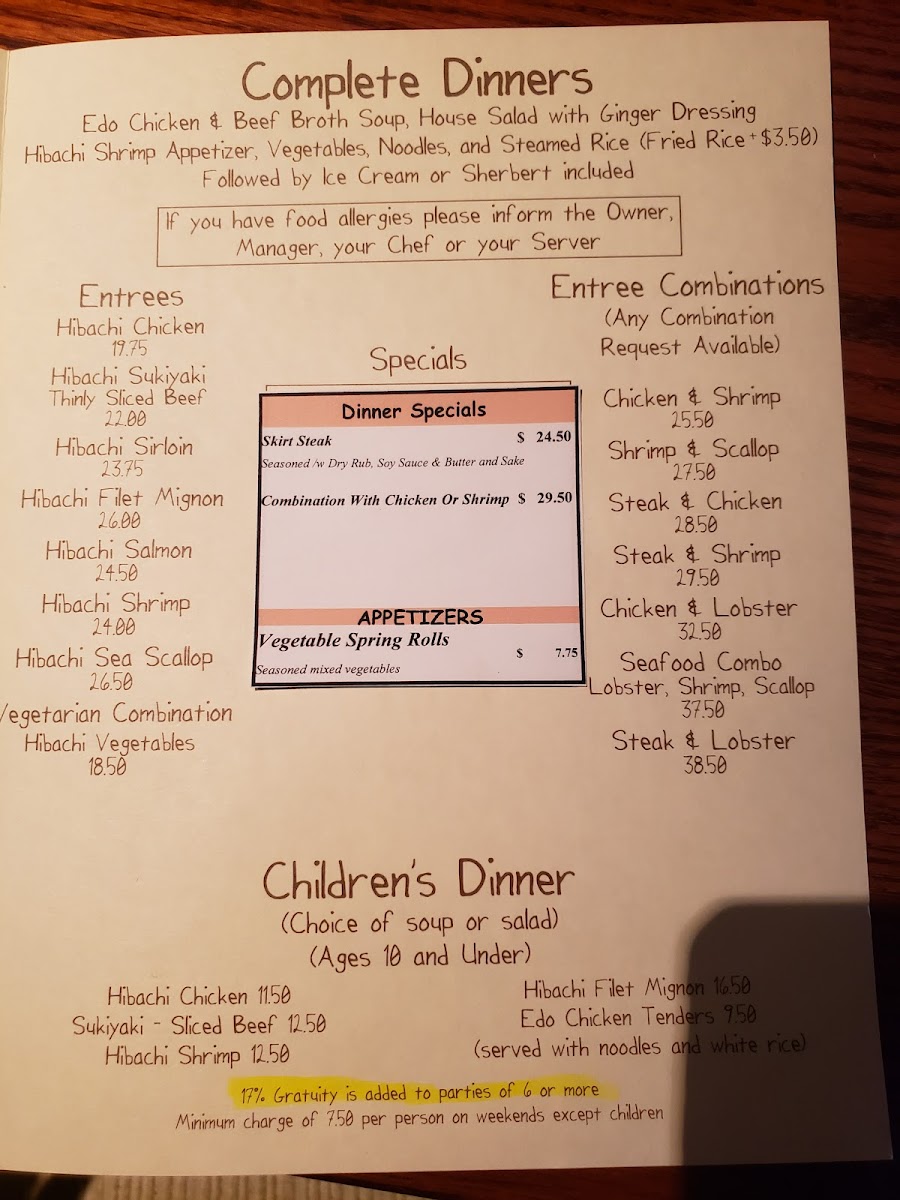 Complete Dinners
Edo Chicken & Beef Broth Soup, House Salad with Ginger Dressing
Hibachi Shrimp Appetizer, Vegetables, Noodles, and Steamed Rice (Fried Rice + $3.50)
Followed by Ice Cream or Sherbert included
If you have food allergies please inform the Owner,
Manager, your Chef or your Server
Entrees
Hibachi Chicken
19.75
Hibachi Sukiyaki
Thinly Sliced Beef
22.00
Hibachi Sirloin
23.75
Hibachi Filet Mignon
26.00
Hibachi Salmon
24.50
Hibachi Shrimp
24.00
Hibachi Sea Scallop
26.50
Vegetarian Combination
Hibachi Vegetables
18.50
Specials
Dinner Specials
Skirt Steak $ 24.50
Seasoned /w Dry Rub, Soy Sauce & Butter and Sake
Combination With Chicken Or Shrimp $ 29.50
APPETIZERS
Vegetable Spring Rolls
$ 7.75
Seasoned mixed vegetables
Entree Combinations
(Any Combination
Request Available)
Chicken & Shrimp
25.50
Shrimp & Scallop
27.50
Steak & Chicken
28.50
Steak & Shrimp
29.50
Chicken & Lobster
32.50
Seafood Combo
Lobster, Shrimp, Scallop
37.50
Steak & Lobster
38.50
Children's Dinner
(Choice of soup or salad)
(Ages 10 and Under)
Hibachi Chicken 11.50
Sukiyaki - Sliced Beef 12.50
Hibachi Shrimp 12.50
Hibachi Filet Mignon 16.50
Edo Chicken Tenders 9.50
(served with noodles and white rice)
17% Gratuity is added to parties of 6 or more
Minimum charge of 7.50 per person on weekends except children